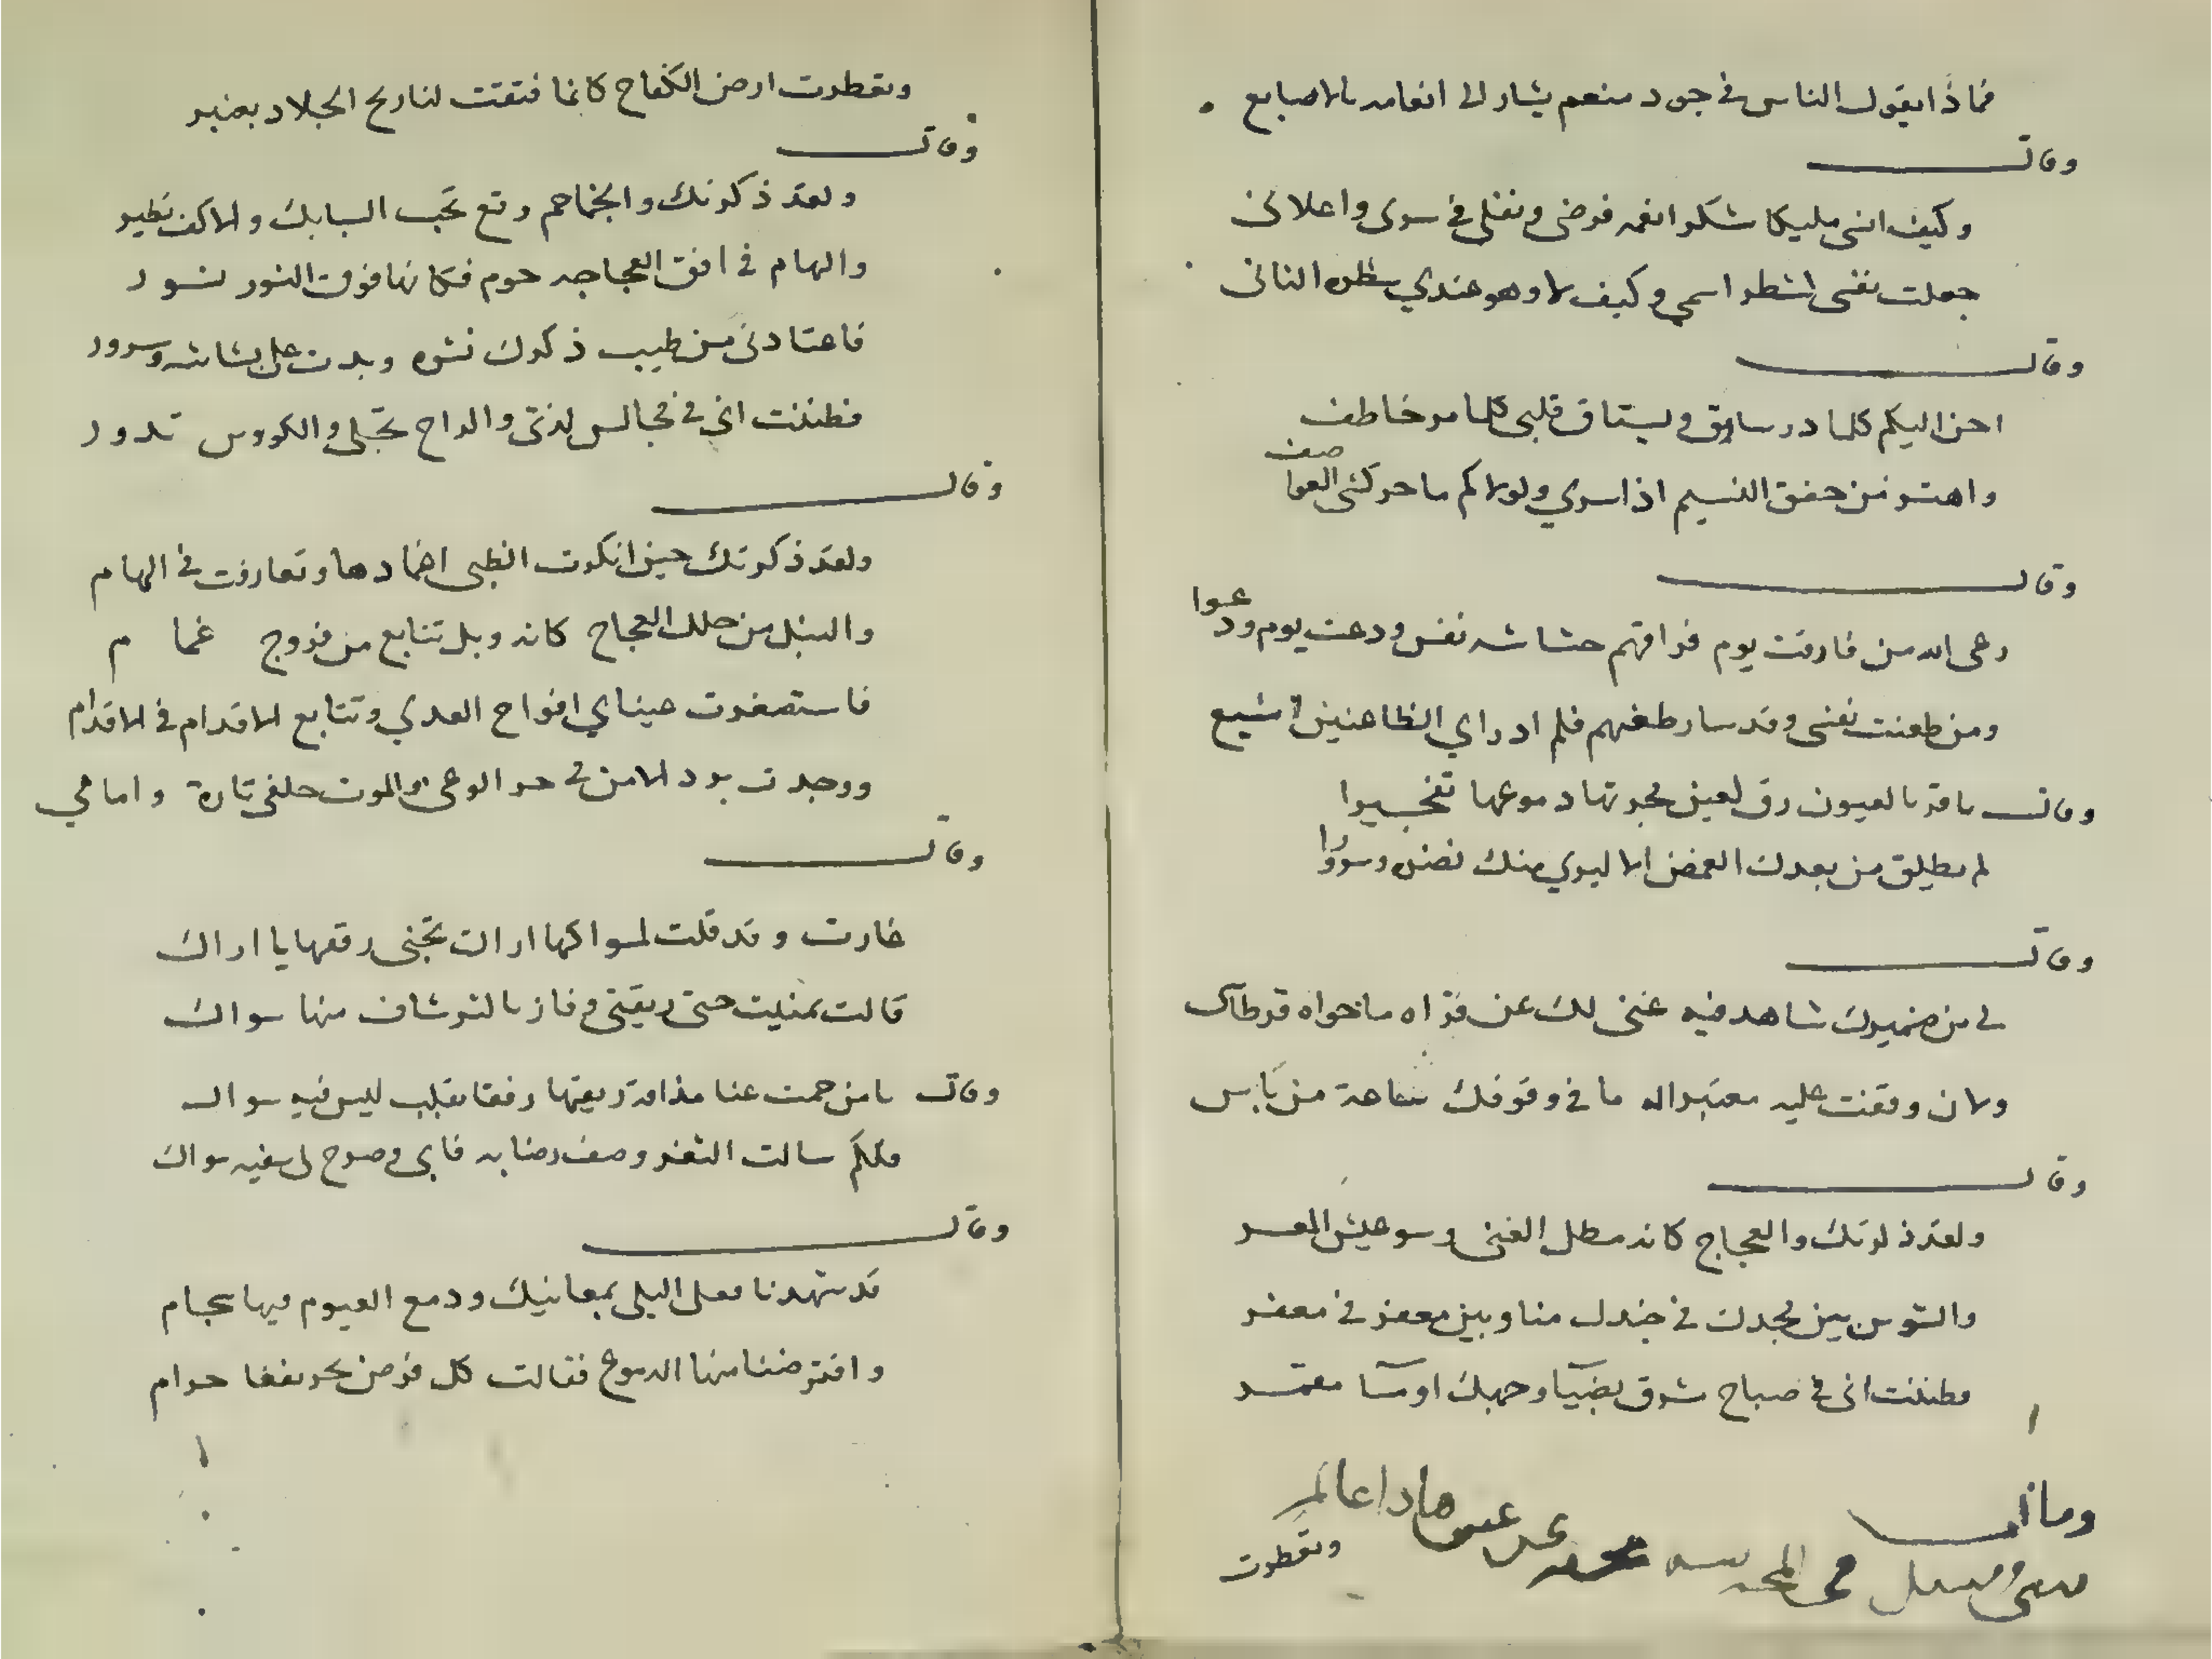 فماذا يقول الناس في جود منعم يشار الى انعامه بالاصابع
وقال
وكيف انسى مليكا شكر انعمه فرضى ونفلى في سرى واعلانى
جعلت نفسى لشطر اسمي وكيف لا وهو عندي شطره الثانى
وقال
احن اليكم كلما در سارق ويشتاق قلبى كلما مر خاطف
واهتز من خفق النسيم اذا سري ولولاكم ما حركتنى العوا
صف
وقال
رعى الله من فارقت يوم فراقهم حشاشه نفس ودعت يوم ودعوا
ومن طعنت نفسى وقد سار طعنهم فلم ادر اي الظاعنين اشيع
وقال يا قرة العيون رق لعين فجرتها دموعها تفجيرا
لم يطلق من بعدك الغمض الا ليري منك نضره وسرورا
وقال
لى من ضميرك شاهد فيه غنى لك عن قراه ما حواه قرطاس
ولان وقفت عليه معتبراله ما في وقوفك ساعة من باس
وقال
ولقد ذكرتك والعجاج كانه مطل الغنى وسو عيش المعسر
والشوس بين مجدل في جندل منا وبين معفر في معفر
فظننت انى في صباح مشرق بضيا وجهك او مسا مقمر
وما
وتقطرت
وتقطرت ارض الكفاح كانما فتقت لنا ريح الجلاد بعنبر
وقال
ولقد ذكرتك والجماجم وقع تحت السنابك والاكف تطير
والهام في افق العجاجه حوم فكانها فوق النسور نسور
فاعتادنى من طيب ذكرك نشوه وبدت على بشاشه وسرور
فظننت اني في مجالس لذتى والراح تجلى والكووس تدور
وقال
ولقد ذكرتك حين انكرت الظبى اغمادها وتعارفت في الهام
والنبل من خلل العجاج كانه وبل تتابع من فروج غمام
فاستصغرت عيناي افواج العدي وتتابع الاقدام في الاقدام
ووجدت برد الامن في حر الوغى والموت خلفى تارة وامامي
وقال
غارت وقد قلت لمسواكها اراك تجنى ريقها يا اراك
قالت تمنيت جنى ريقتى وفاز بالترشاف منها سواك
وقال يا من حمت عنا مذاقة ريقها رفقا بقلب ليس فيه سواك
فلكم سالت الثغر وصف رضابه فابى وصرح لى سفيه سواك
وقال
قد شهدنا فعل البلى بمغانيك ودمع الغيوم فيها سجام
وافترضنا منها الدموع فقالت كل قرض يجر نفعا حرام